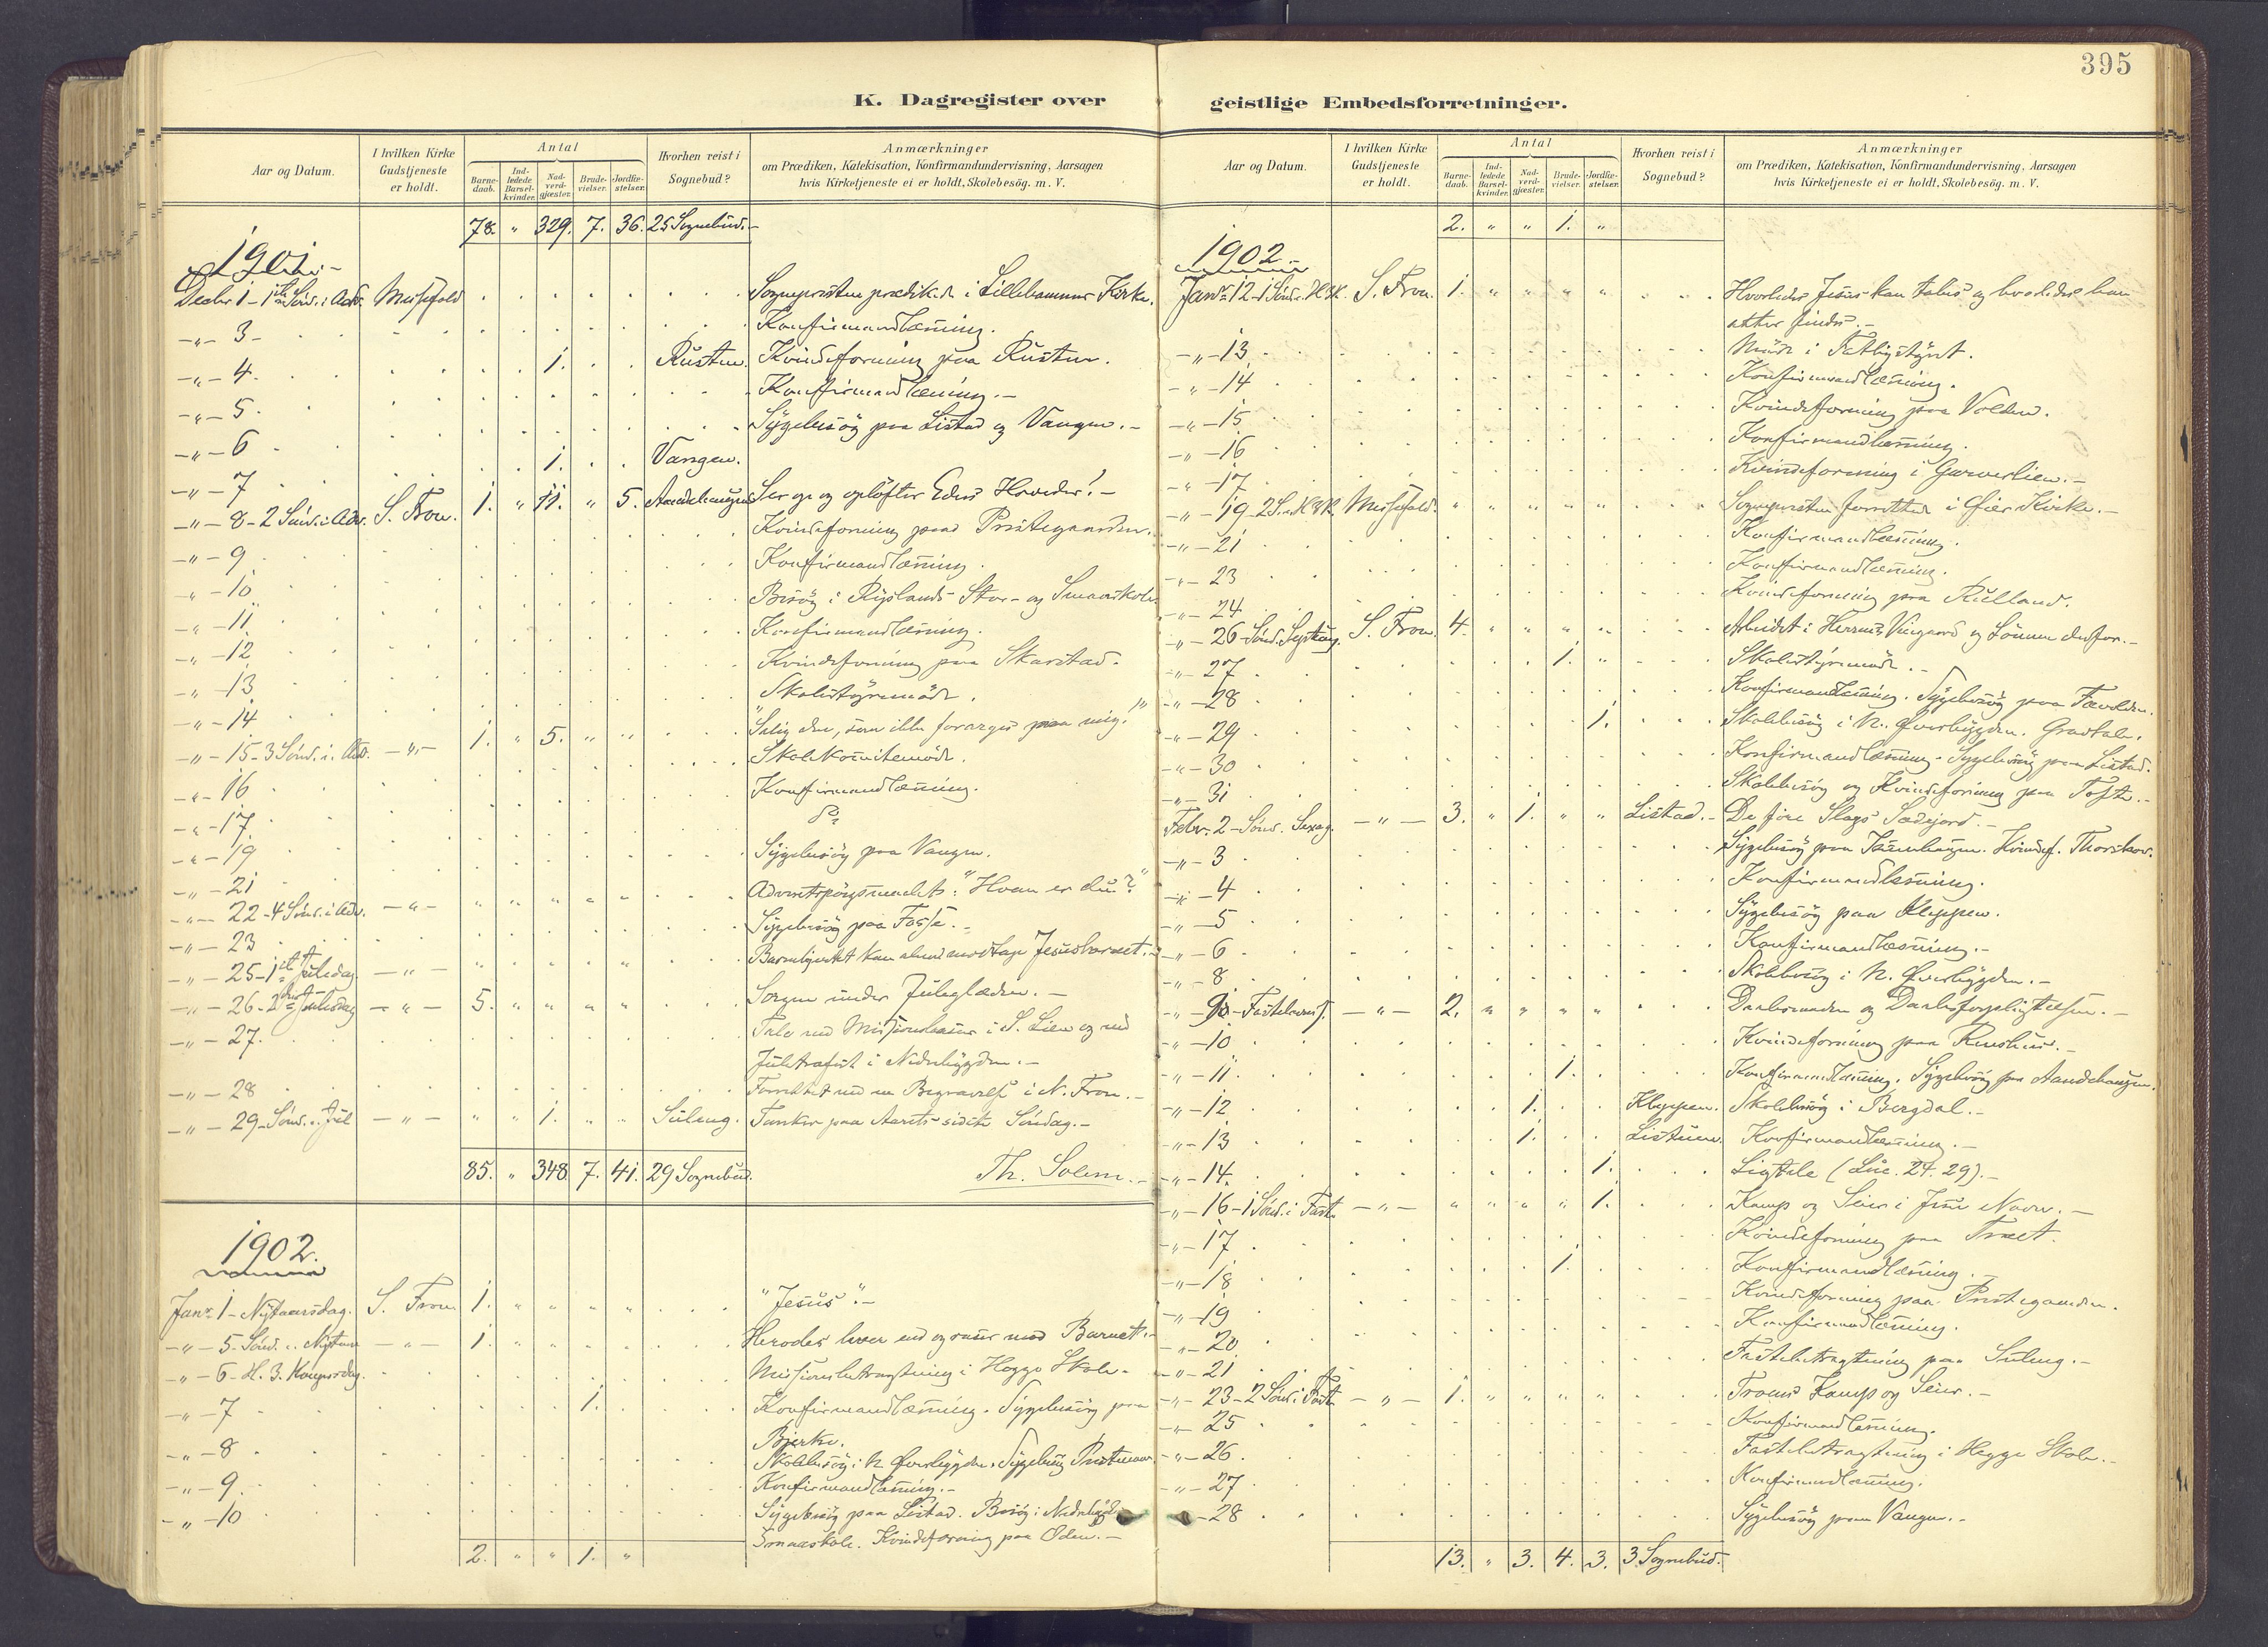 395
K. Dagregister over geistlige Embedsforretninger.
Aar og Datum.
I hvilken Kirke Gudstjeneste er holdt.
Antal
Barne-daab.
Ind-ledede Barsel-kvinder.
Nad-verd-gjæster.
Brude-vielser.
Jordfæ-stelser.
Hvorhen reist i Sognebud?
Anmærkninger
om Prædiken, Katekisation, Konfirmandundervisning, Aarsagen
hvis Kirketjeneste ei er holdt, Skolebesög. m. V.
78. " 329. 7. 36. 25 Sognebud.-
1901.-
Decbr 1 - 1ste Sönd. i Adv. Messefald Sognepresten prædikede i Lillehammer Kirke.
-"- 3- Konfirmandlæsning.
-"- 4. 1. Rusten. Kvindeforening paa Rusten.
-"- 5. Konfirmandlæsning.-
-"- 6 Sygebesög paa Listad og Vangen.-
-"- 7 1. Vangen.
-"- 8-2 Sönd. i Adv. S. Fron. 1. " 11. " 5. Aandehaugen Ser op og oplöfter Eders Hoveder!-
-"- 9 Kvindeforening paa Prestegaarden.
-"- 10 Konfirmandlæsning.
-"- 11 Besög i Ryslands Stor- og Smaaskole.
-"- 12 Konfirmandlæsning.
-"- 13 Kvindeforening paa Skarstad.
-"- 14 Skolestyremöde.
-"- 15-3 Sönd. i Adv. -"- 1. " 5. " " "Salig den, som ikke forarges paa mig!"
-"- 16 Skolekomitemöde.
-"- 17. Konfirmandlæsning.
-"- 19 Do
-"- 21 Sygebesög paa Vangen.
-"- 22-4 Sönd. i Adv. -"- " " " " " Adventspörgsmaalet: "Hvem er du?"
-"- 23 Sygebesög paa Fosse.-
-"- 25-1ste Juledag -"- " " " " " Barnehjertet kan alene modtage Jesusbarnet.-
-"- 26-2den Juledag -"- 5. " " " " Sorgen under Juleglæden.-
-"- 27. Tale ved Missionsbasar i S. Lien og ved
Juletræfest i Nedrebygden.-
-"- 28 Forrettet ved en Begravelse i N. Fron.-
-"- 29-Sönd. e. Jul -"- " " 1. " " Suleng. Tanker paa Aarets sidste Söndag.-
85. " 348. 7. 41. 29 Sognebud. Th. Solem.-
1902.
Janr 1 - Nytaarsdag. S. Fron. 1. " " " " "Jesus".-
-"- 5-Sönd. e. Nytaar -"- 1. " " " " Herodes lever end og raser mod Barnet.-
-"- 6-H. 3. Kongersdag. Missionsbetragtning i Hegge Skole.-
-"- 7 1. Konfirmandlæsning. Sygebesög paa
Bjerke.
-"- 8 Skolebesög i N. Överbygden. Sygebesög
-"- 9. Konfirmandlæsning.-
-"- 10 Sygebesög paa Listad. Besög i Nedrebygdens
Smaaskole. Kvindeforening paa Öden.-
2. " " 1. "
Aar og Datum.
I hvilken Kirke Gudstjeneste er holdt.
Antal
Barne-daab.
Ind-ledede Barsel-kvinder.
Nad-verd-gjæster.
Brude-vielser.
Jordfæ-stelser.
Hvorhen reist i Sognebud?
Anmærkninger
om Prædiken, Katekisation, Konfirmandundervisning, Aarsagen
hvis Kirketjeneste ei er holdt, Skolebesög. m. V.
2. " " 1. "
1902.-
Janr 12-1 Sönd. e. H3K. S. Fron. 1. " " " " Hvorledes Jesus kan tabes og hvorledes han
atter findes.-
-"- 13 Möde i Fattigstyret.
-"- 14 Konfirmandlæsning.
-"- 15 Kvindeforening paa Volden.
-"- 16 Konfirmandlæsning.
-"- 17 Kvindeforening i Garverlien.-
-"- 19-2 S. e. H3K. Messefald. " " " " " Sognepresten forrettede i Öier Kirke.-
-"- 21 Konfirmandlæsning.
-"- 23 Konfirmandlæsning.
-"- 24 Kvindeforening paa Rulland.
-"- 26-Sönd. Septuag. S. Fron. 4. " " " " Arbeidet i Herrens Vingaard og Lönnen derfor.-
-"- 27 1. " Skolestyremöde.-
-"- 28 Konfirmandlæsning. Sygebesög paa
-"- 29 1. Skolebesög i N. Överbygden. Gravtale.
-"- 30 Konfirmandlæsning. Sygebesög paa Listad.
-"- 31 Skolebesög og Kvindeforening paa Tofte.-
Febr. 2-Sönd. Sexag. -"- 3. " 1. " " Listad.- De fire Slags Sædejord.-
-"- 3 Sygebesög paa Kvindef.
-"- 4 Konfirmandlæsning.
-"- 5 Sygebesög paa Kleppen.
-"- 6 Konfirmandlæsning.-
-"- 8 Skolebesög i N. Överbygden.-
-"- 9-Fastelavns. -"- 2. " " " " Daabsnaaden og Daabsforpligtelsen.-
-"- 10 Kvindeforening paa
-"- 11. 1. Konfirmandlæsning. Sygebesög paa Aandehaugen.
-"- 12 1. Kleppen. Skolebesög i Bergdal.-
-"- 13 1. Konfirmandlæsning.-
-"- 14. 1. Ligtale (Luc. 24. 29).-
-"- 16-1 Sönd. i Faste -"- " " " " 1. Kamp og Seier i Jesu Navn.-
-"- 17 Kvindeforening paa
-"- 18 1. Konfirmandlæsning.-
-"- 19 Kvindeforening paa Prestegaarden.
-"- 20 Konfirmandlæsning.
-"- 21 Fastebetragtning paa Suleng.-
-"- 23-2 Sönd. i Faste -"- 1. " " " " Troens Kamp og Seier.-
-"- 25 Konfirmandlæsning.
-"- 26 Fastebetragtning i Hegge Skole.-
-"- 27 Konfirmandlæsning.
-"- 28 Sygebesög paa Vangen.-
13. " 3. 4. 3. 3 Sognebud.